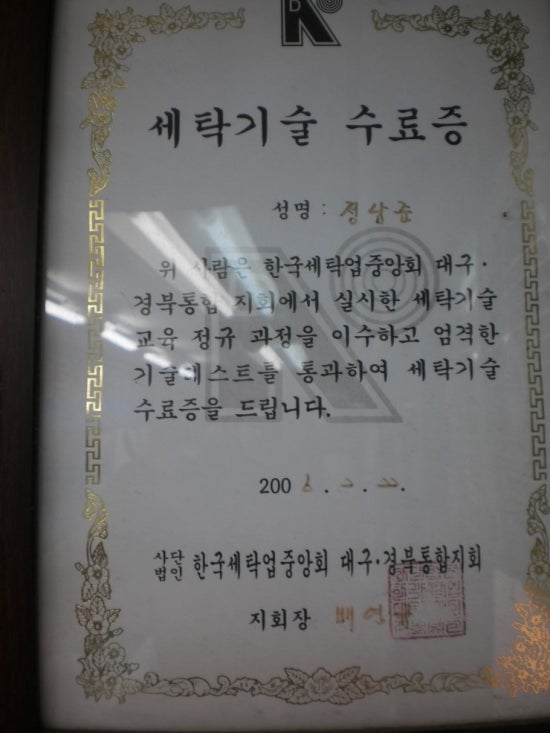 세탁기술 수료증
성명 : 정상준
위 사람은 한국세탁업중앙회 대구·
경북통합 지회에서 실시한 세탁기술
교육 정규 과정을 이수하고 엄격한
기술테스트틀 통과하여 세탁기술
수료증을 드립니다.
200
사단법인 한국세탁업중앙회 대구·경북통합지회
지회장